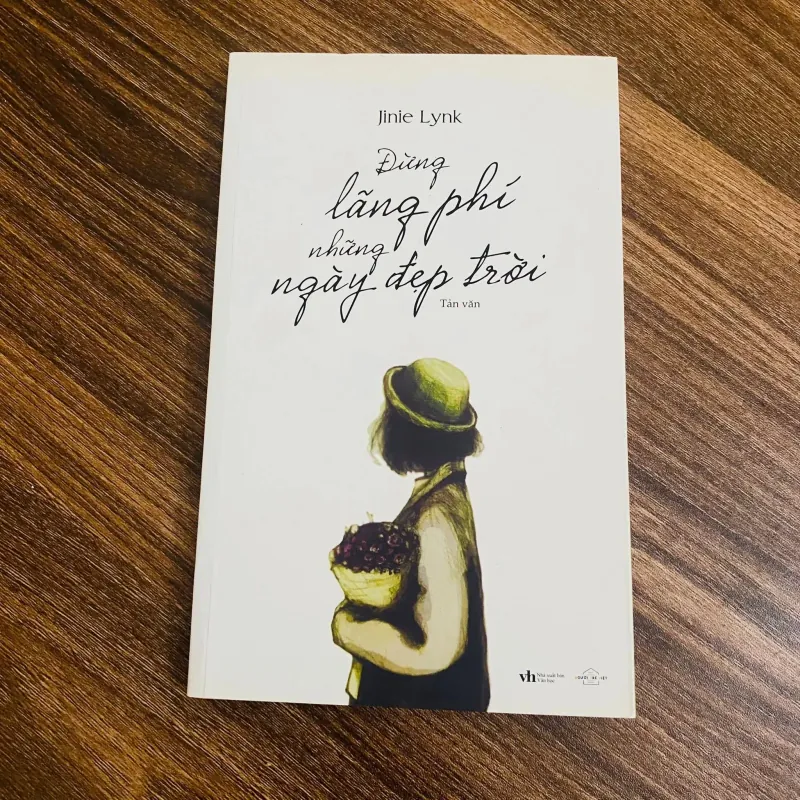 Jinie Lynk
Đừng
lãng phí
những
ngày đẹp trời
Tản văn
vh Nhà xuất bản
Văn học